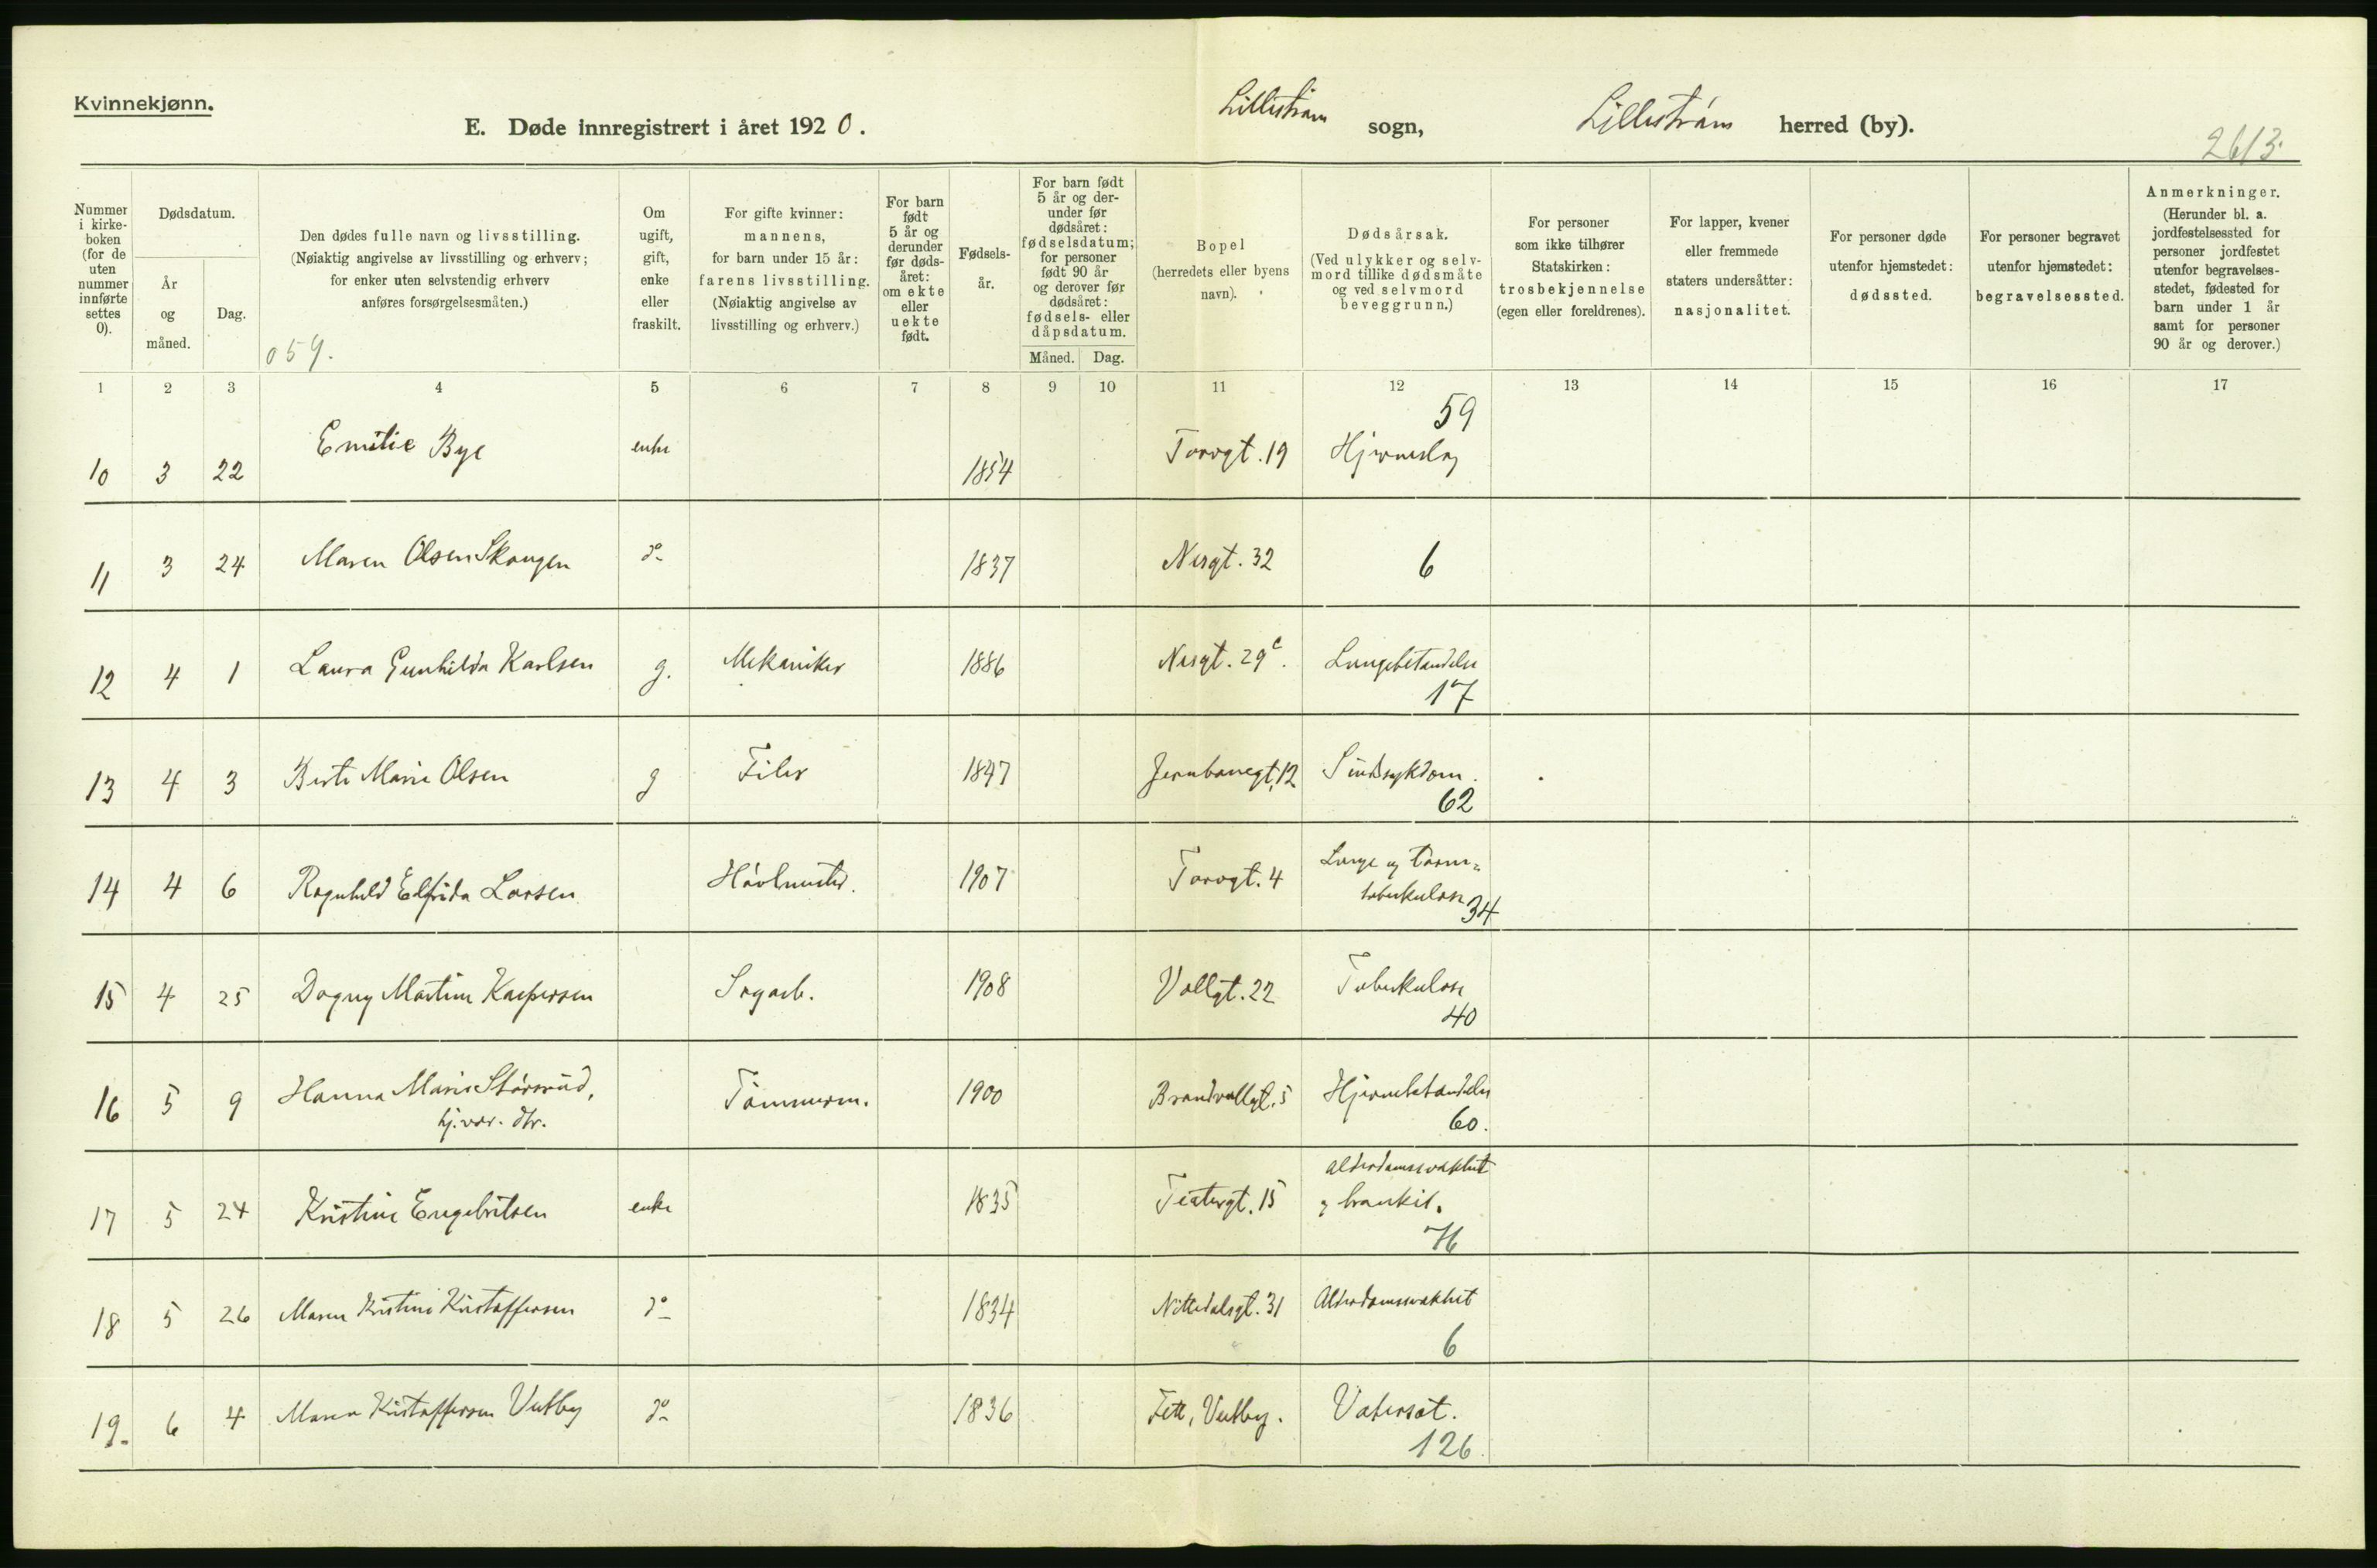 Kvinnekjønn.
E. Døde innregistrert i året 1920.
Lillestrøm sogn,
Lillestrøm herred (by).
2613.
Nummer i kirke-boken (for de uten nummer innførte settes 0).
Dødsdatum.
År og måned.
Dag.
Den dødes fulle navn og livsstilling.
(Nøiaktig angivelse av livsstilling og erhverv;
for enker uten selvstendig erhverv
anføres forsørgelsesmåten.)
059.
Om ugift, gift, enke eller fraskilt.
For gifte kvinner:
mannens,
for barn under 15 år:
farens livsstilling.
(Nøiaktig angivelse av
livsstilling og erhverv.)
For barn født 5 år og derunder før døds-året: om ekte eller uekte født.
Fødsels-år.
For barn født 5 år og der-under før dødsåret: fødselsdatum; for personer født 90 år og derover før dødsåret: fødsels- eller dåpsdatum.
Måned. Dag.
Bopel
(herredets eller byens
navn).
Dødsårsak.
(Ved ulykker og selv-
mord tillike dødsmåte
og ved selvmord
beveggrunn.)
For personer
som ikke tilhører
Statskirken:
trosbekjennelse
(egen eller foreldrenes).
For lapper, kvener
eller fremmede
staters undersåtter:
nasjonalitet.
For personer døde
utenfor hjemstedet:
dødssted.
For personer begravet
utenfor hjemstedet:
begravelsessted.
Anmerkninger.
(Herunder bl. a.
jordfestelsessted for
personer jordfestet
utenfor begravelses-
stedet, fødested for
barn under 1 år
samt for personer
90 år og derover.)
1 2 3 4 5 6 7 8 9 10 11 12 13 14 15 16 17
59
10 3 22 Emilie Bye enke 1854 Torvgt. 19 Hjerneslag
11 3 24 Maren Olsen Skaugen do 1837 Nergt. 32 6
12 4 1 Laura Gunhilda Karlsen g. Mekaniker 1886 Nergt. 29c. Lungebetændelse
17
13 4 3 Berte Marie Olsen g Filer 1847 Jernbanegt. 12 Sindsykdom.
62
14 4 6 Ragnhild Elfrida Larsen Høvlmester. 1907 Torvgt. 4 Lunge og tarm-
tuberkulose 34
15 4 25 Dagny Martine Kaspersen Sagarb. 1908 Vollgt. 22 Tuberkulose
40
16 5 9 Hanna Marie Størsrud, Tømmerm. 1900 Brandvollgt. 5 Hjernebetændelse
hj. vær. dtr. 60.
17 5 24 Kristine Engebretsen enke 1835 Teatergt. 15 Alderdomssvakhet
og bronkit.
76
18 5 26 Maren Kristine Kristoffersen do 1834 Nittedalsgt. 31 Alderdomssvakhet
6
19. 6 4 Maren Kristoffersen do 1836 Fett, Vatersot.
126.